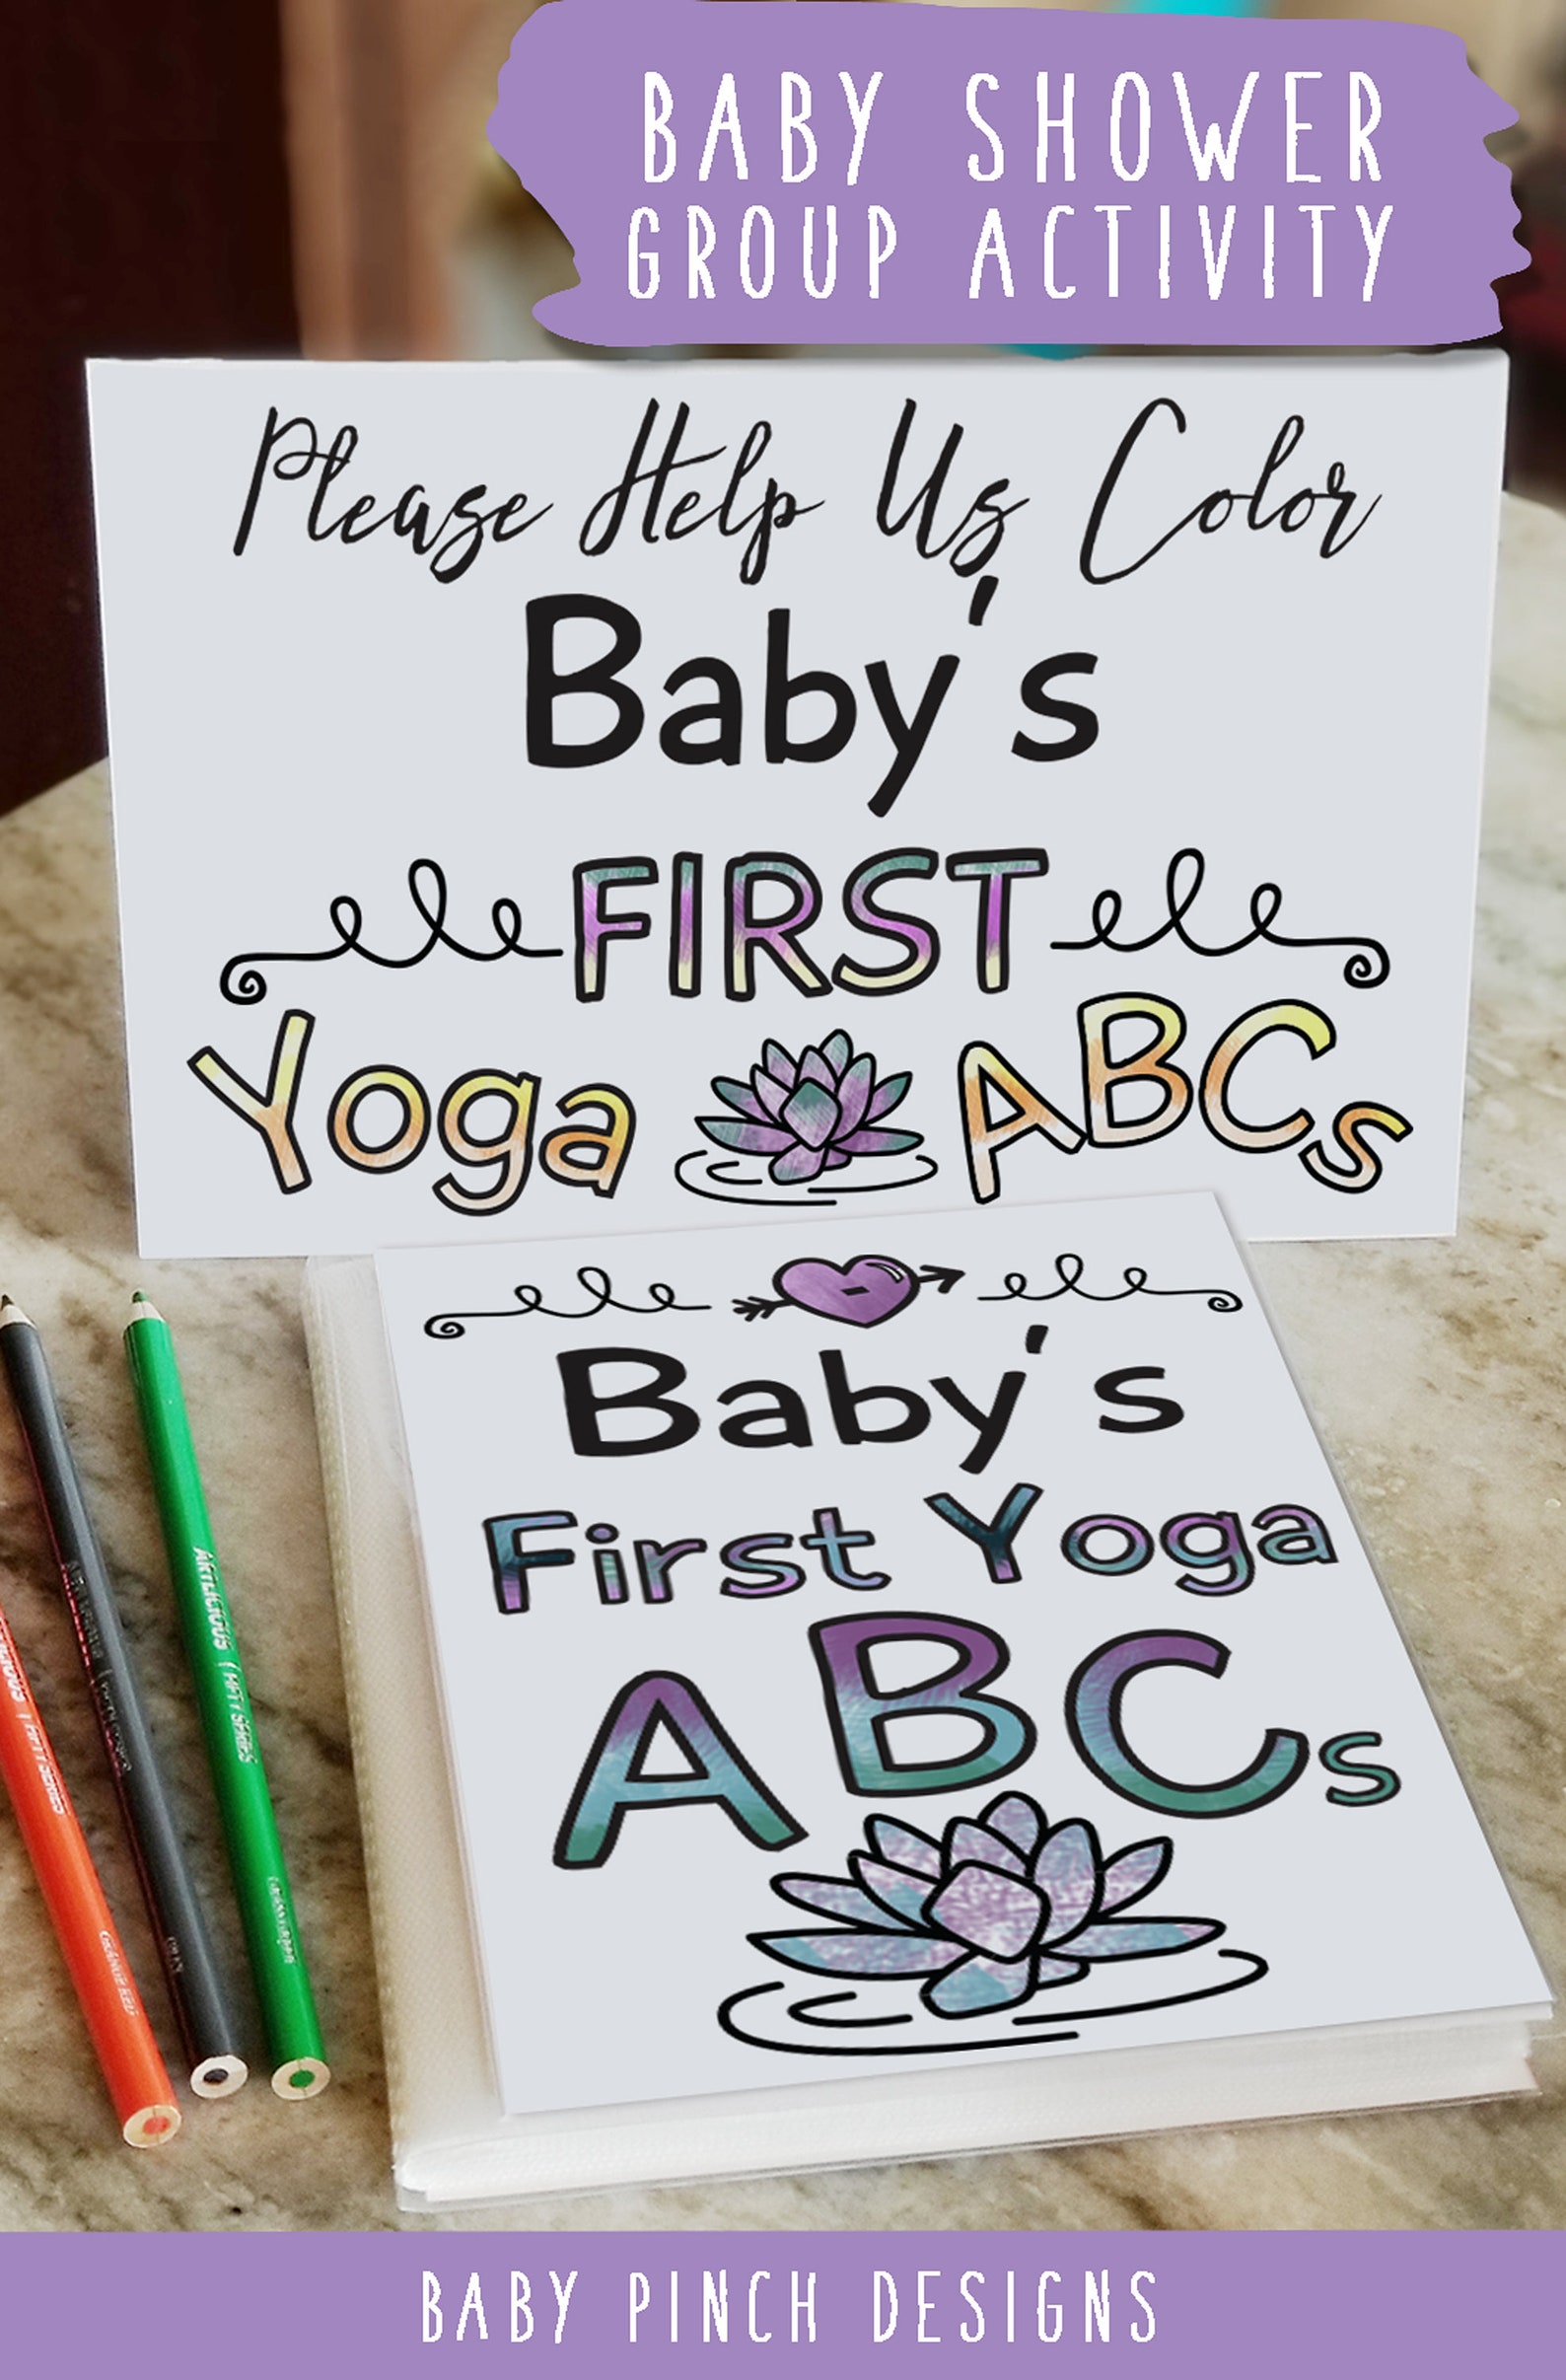 BABY SHOWER
GROUP ACTIVITY
Please Help Us Color
Baby's
FIRST
Yoga ABCs
Baby's
First Yoga
ABCs
BABY PINCH DESIGNS